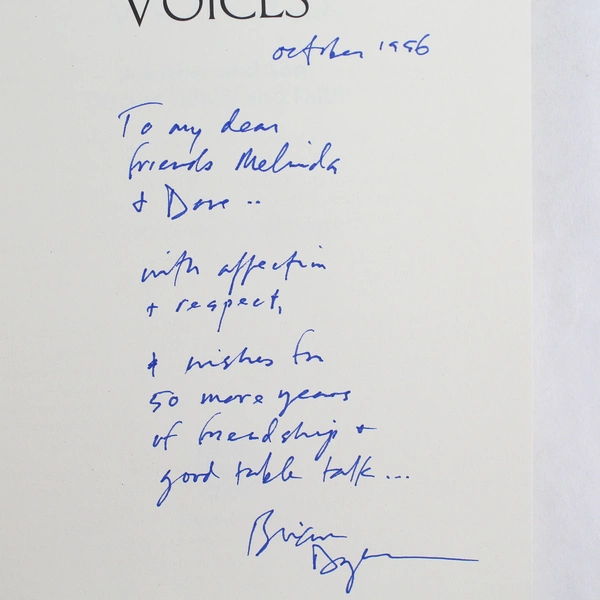 VOICES
october 1996
To my dear
friends Melinda
& Dave ..
with affection
+ respect,
& wishes for
50 more years
of friendship +
good table talk...
Brian
Doyle